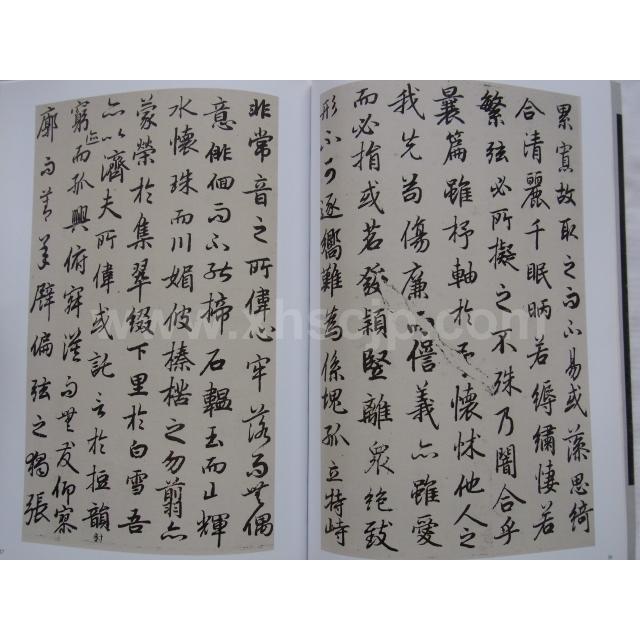 累寔故取之而不易或藻思綺
合清麗千眠昞若縟繡悽若
繁弦必所擬之不殊乃闇合乎
曩篇雖杼軸於予懷怵他人之
我先苟傷廉而愆義亦雖愛
而必捐或苕發穎竪離衆絕致
形不可逐嚮難為係塊孤立特峙
非常音之所偉心牢落而無偶
意徘徊而不能揥石韞玉而山輝
水懷珠而川媚彼榛楛之勿翦亦
蒙榮於集翠綴下里於白雪吾
亦以濟夫所偉或託言於短韻對
窮迹而孤興俯寂漠而無友仰寥
廓而莫承譬偏弦之獨張
www.xhscjp.com